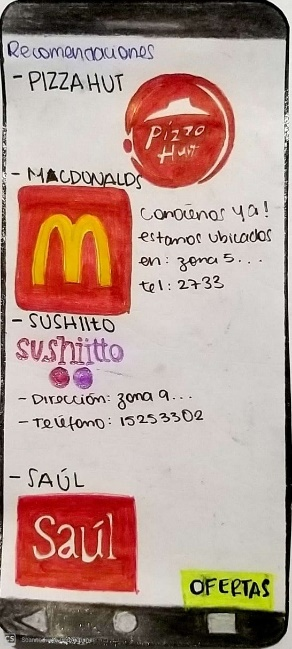 Recomendaciones
- PIZZA HUT
Pizza
Hut
- MACDONALDS
M
conócenos ya!
estamos ubicados
en: zona 5...
tel: 2733
- SUSHIITO
sushiitto
- Dirección: zona 9...
- Teléfono: 15253302
- SAÚL
Saúl
OFERTAS
CS